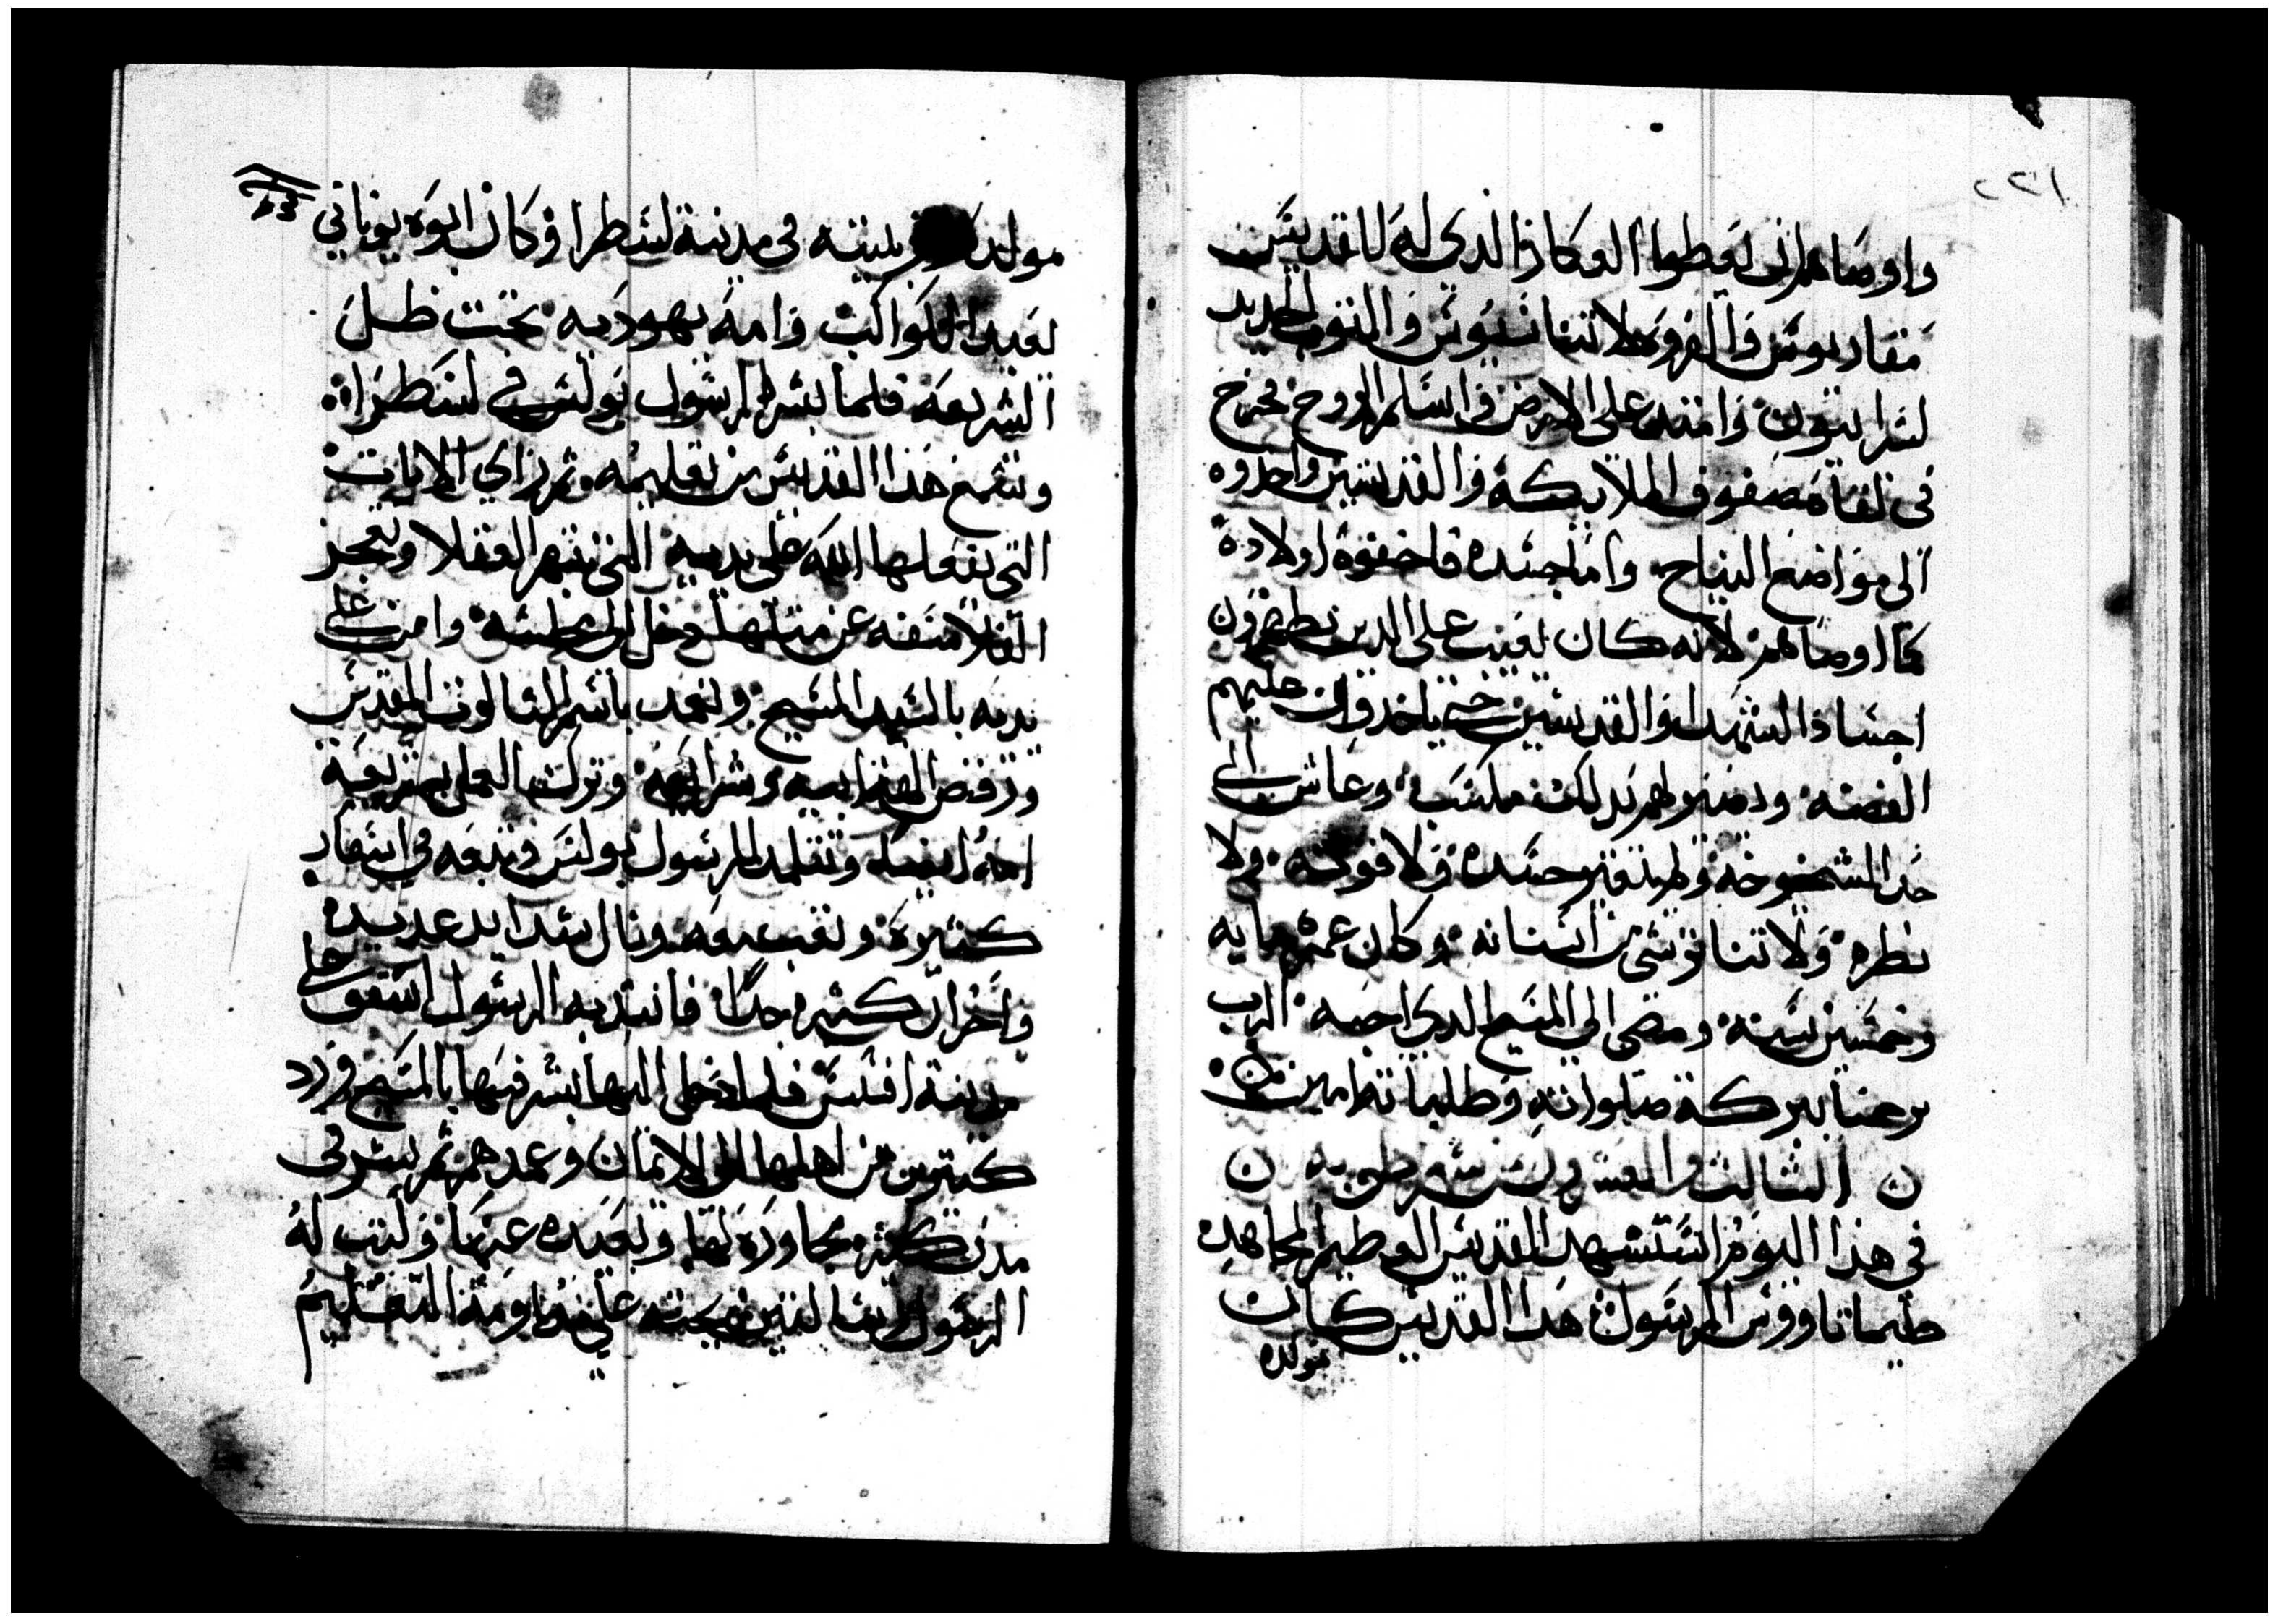 ٢٢١
واوصاهم ان يعطوا العكاز الذي له للقديس
مقاريوس والفروه لاتناسيوس والثوب الجديد
لسرابيون وامتد على الارض واسلم الروح فخرج
في لقاه صفوف الملايكة والقديسين واخدوه
الى مواضع النياح واما جسده فاخفوه اولاده
كما اوصاهم لانه كان يعيب على الدين يظهرون
اجساد الشهدا والقديسين حتى ياخدوا عليهم
الفضه ودمنوا لهم بدلك مكسب وعاش الى
حد الشيخوخه ولم يتغير جسده ولا قوته ولا
نظره ولا تناثر شي من اسنانه وكان عمره مايه
وخمسين سنه ومضى الى المسيح الدي احبه الرب
يرحمنا ببركة صلواته وطلباته امين
الثالث والعشرون من شهر طوبه
في هذا اليوم استشهد القديس العظيم المجاهد
طيماتاووس الرسول هدا القديس كان
مولده
مولد بيته في مدينة لسطرا وكان ابوه يوناني
يعبد الكواكب وامه يهوديه تحت ظل
الشريعه فلما بشر الرسول بولس في لسطرا
وسمع هذا القديس من تعليمه ثم راي الايات
التي يفعلها الله على يديه التي تبهر العقلا وتعجز
الفلاسفه عن مثلها دخل الى مجلسه وامن على
يديه بالسيد المسيح وتعمد باسم التالوت المقدس
ورفض الهة ابيه وشرايعه وترك العمل بشريعة
امه ايضا وتتلمد للرسول بولس وتبعه في اسفار
كثيره وتعب معه ونال شدايد عديده
واحزان كثيره جدا فانتدبه الرسول اسقف على
مدينة افسس فلما دخل اليها بشر فيها بالمسيح ورد
كثيرين من اهلها الى الايمان وعمدهم ثم بشر في
مدن كثيره مجاوره لها وبعيده عنها وكتب له
الرسول رسالتين يحثه على مداومة التعليم